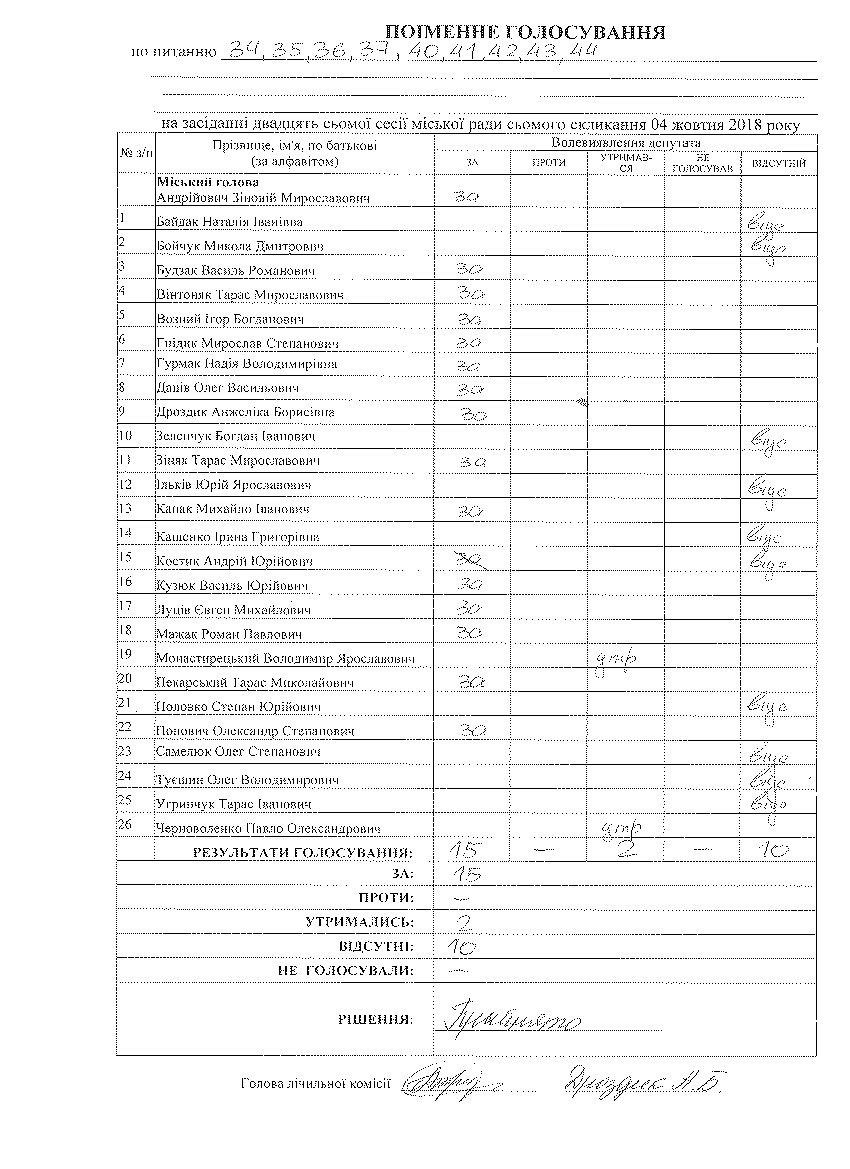 ПОІМЕННЕ ГОЛОСУВАННЯ
по питанню 34, 35, 36, 37, 40, 41, 42, 43, 44
на засіданні двадцять сьомої сесії міської ради сьомого скликання 04 жовтня 2018 року
№ з/п Прізвище, ім'я, по батькові (за алфавітом) Волевиявлення депутата
ЗА ПРОТИ УТРИМАВ-СЯ НЕ ГОЛОСУВАВ ВІДСУТНІЙ
Міський голова
Андрійович Зіновій Мирославович за
1 Байдак Наталія Іванівна відс
2 Бойчук Микола Дмитрович відс
3 Будзак Василь Романович за
4 Вінтоняк Тарас Мирославович за
5 Возний Ігор Богданович за
6 Гнідик Мирослав Степанович за
7 Гурмак Надія Володимирівна за
8 Данів Олег Васильович за
9 Дроздик Анжеліка Борисівна за
10 Зеленчук Богдан Іванович відс
11 Зіняк Тарас Мирославович за
12 Ільків Юрій Ярославович відс
13 Капак Михайло Іванович за
14 Кащенко Ірина Григорівна відс
15 Костик Андрій Юрійович за відс
16 Кузюк Василь Юрійович за
17 Луців Євген Михайлович за
18 Мажак Роман Павлович за
19 Монастирецький Володимир Ярославович утр
20 Пекарський Тарас Миколайович за
21 Половко Степан Юрійович відс
22 Попович Олександр Степанович за
23 Самелюк Олег Степанович відс
24 Туєшин Олег Володимирович відс
25 Угринчук Тарас Іванович відс
26 Черноволенко Павло Олександрович утр
РЕЗУЛЬТАТИ ГОЛОСУВАННЯ: 15 — 2 — 10
ЗА: 15
ПРОТИ: —
УТРИМАЛИСЬ: 2
ВІДСУТНІ: 10
НЕ ГОЛОСУВАЛИ: —
РІШЕННЯ: Прийнято
Голова лічильної комісії Дроздик А. Б.